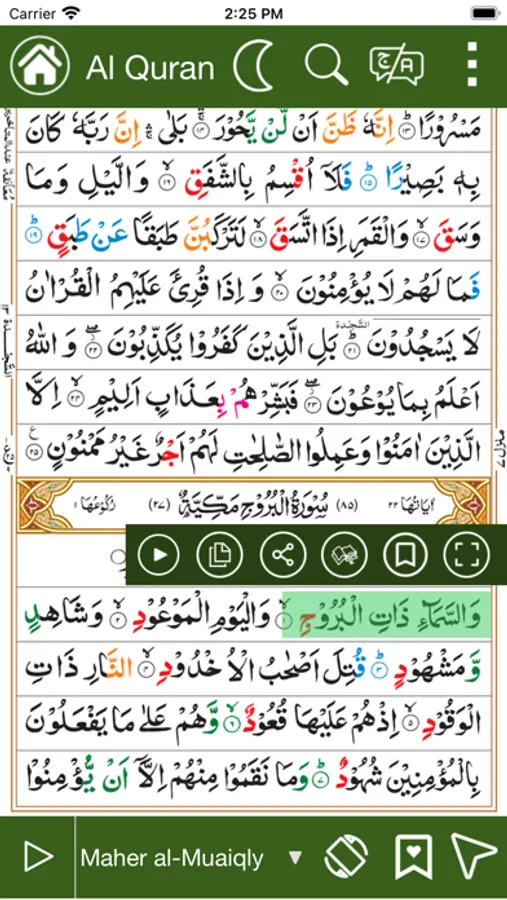 Carrier 2:25 PM
Al Quran
مَسْرُوْرًا ۟ۙ۝۱۳ اِنَّهٗ ظَنَّ اَنْ لَّنْ يَّحُوْرَ ۝۱۴ۚۛ بَلٰۤى ۛۚ اِنَّ رَبَّهٗ كَانَ
بِهٖ بَصِيْرًا ۝۱۵ؕ فَلَاۤ اُقْسِمُ بِالشَّفَقِ ۝۱۶ۙ وَالَّيْلِ وَمَا
وَسَقَ ۝۱۷ۙ وَالْقَمَرِ اِذَا اتَّسَقَ ۝۱۸ۙ لَتَرْكَبُنَّ طَبَقًا عَنْ طَبَقٍ ۝۱۹ؕ
فَمَا لَهُمْ لَا يُؤْمِنُوْنَ ۝۲۰ۙ وَ اِذَا قُرِئَ عَلَيْهِمُ الْقُرْاٰنُ
لَا يَسْجُدُوْنَ ۝۲۱ؕ السَّجْدَة بَلِ الَّذِيْنَ كَفَرُوْا يُكَذِّبُوْنَ ۝۲۲ۖ وَ اللّٰهُ
اَعْلَمُ بِمَا يُوْعُوْنَ ۝۲۳ۖ فَبَشِّرْهُمْ بِعَذَابٍ اَلِيْمٍ ۝۲۴ۙ اِلَّا
الَّذِيْنَ اٰمَنُوْا وَعَمِلُوا الصّٰلِحٰتِ لَهُمْ اَجْرٌ غَيْرُ مَمْنُوْنٍ ۝۲۵ ع
منزل ۷
اٰيَاتُهَا ۲۲ (۸۵) سُوْرَةُ الْبُرُوْجِ مَكِّيَّةٌ (۲۷) رُكُوْعُهَا ۱
وَالسَّمَآءِ ذَاتِ الْبُرُوْجِ ۝۱ۙ وَالْيَوْمِ الْمَوْعُوْدِ ۝۲ۙ وَشَاهِدٍ
وَّمَشْهُوْدٍ ۝۳ؕ قُتِلَ اَصْحٰبُ الْاُخْدُوْدِ ۝۴ۙ النَّارِ ذَاتِ
الْوَقُوْدِ ۝۵ۙ اِذْ هُمْ عَلَيْهَا قُعُوْدٌ ۝۶ۙ وَّهُمْ عَلٰى مَا يَفْعَلُوْنَ
بِالْمُؤْمِنِيْنَ شُهُوْدٌ ۝۷ؕ وَمَا نَقَمُوْا مِنْهُمْ اِلَّاۤ اَنْ يُّؤْمِنُوْا
Maher al-Muaiqly